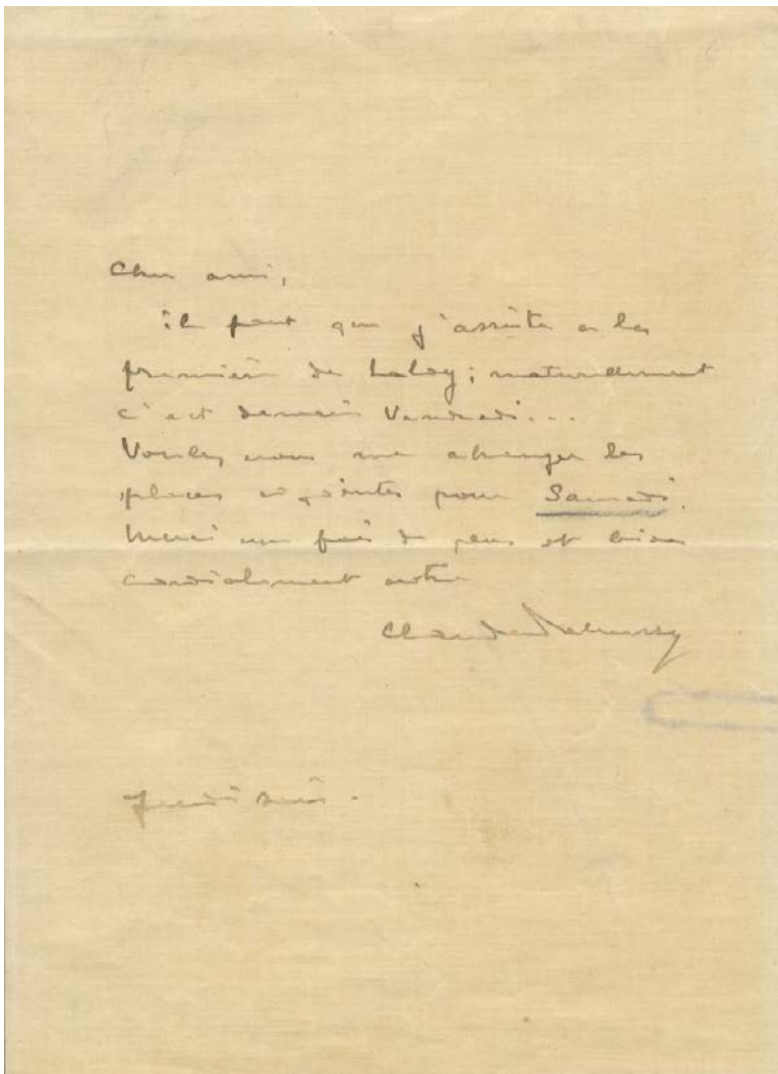 Cher ami,
il faut que j'assiste a la
première de Laloy ; naturellement
c'est demain Vendredi...
Voulez vous me changer les
places ci jointes pour Samedi.
Merci une fois de plus et bien
cordialement votre
Claude Debussy
Jeudi soir.